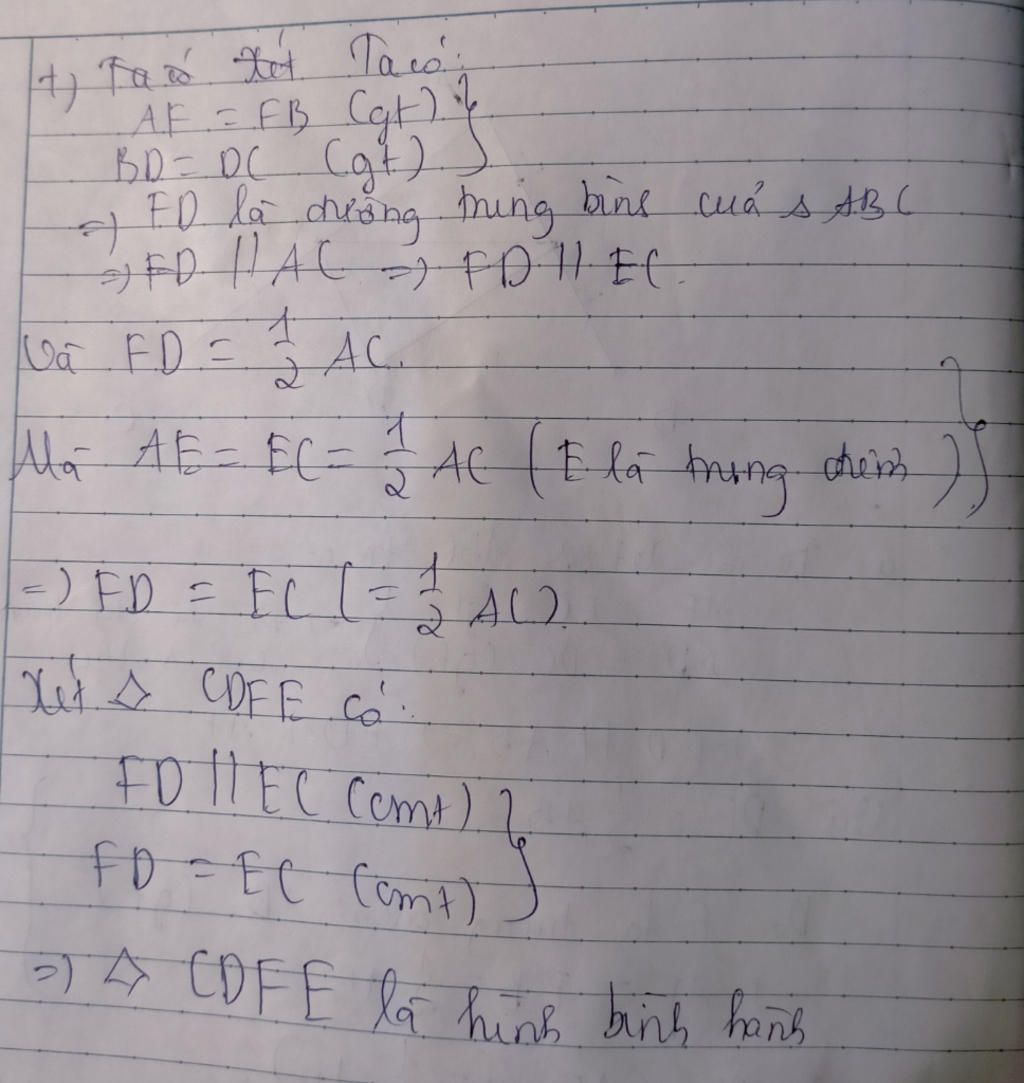 +) Ta có Xét Ta có:
AF = FB (gt)
BD = DC (gt) }
=) FD là đường trung bình của △ ABC
=) FD // AC =) FD // EC.
Và FD = 1/2 AC.
Mà AE = EC = 1/2 AC (E là trung điểm) }
=) FD = EC (= 1/2 AC).
Xét ◇ CDFE có:
FD // EC (cmt)
FD = EC (cmt) }
=) ◇ CDFE là hình bình hành